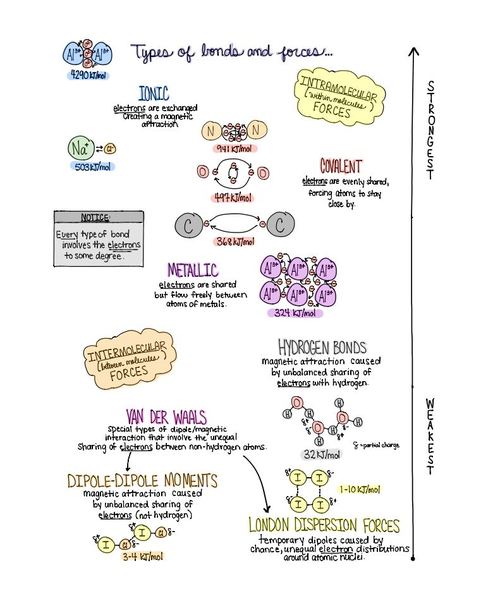 Types of bonds and forces...
Al³⁺ Al³⁺
4290 KJ/mol
IONIC
electrons are exchanged
creating a magnetic
attraction
INTRAMOLECULAR
(within molecules)
FORCES
STRONGEST
Na⁺ Cl⁻
503 KJ/mol
N N
941 KJ/mol
O O
497 KJ/mol
COVALENT
electrons are evenly shared,
forcing atoms to stay
close by.
C C
368 KJ/mol
NOTICE:
Every type of bond
involves the electrons
to some degree.
METALLIC
electrons are shared
but flow freely between
atoms of metals.
Al³⁺ Al³⁺ Al³⁺
Al³⁺ Al³⁺ Al³⁺
324 KJ/mol
INTERMOLECULAR
(between molecules)
FORCES
HYDROGEN BONDS
magnetic attraction caused
by unbalanced sharing of
electrons with hydrogen.
H O H O H H O H
32 KJ/mol
δ = partial charge
WEAKEST
VAN DER WAALS
Special types of dipole/magnetic
interaction that involve the unequal
Sharing of electrons between non-hydrogen atoms.
DIPOLE-DIPOLE MOMENTS
magnetic attraction caused
by unbalanced sharing of
electrons (not hydrogen)
δ+ I Cl δ- δ+ I Cl δ-
3-4 KJ/mol
δ+ I I δ-
δ- I I δ+
1-10 KJ/mol
LONDON DISPERSION FORCES
temporary dipoles caused by
chance, unequal electron distributions
around atomic nuclei.